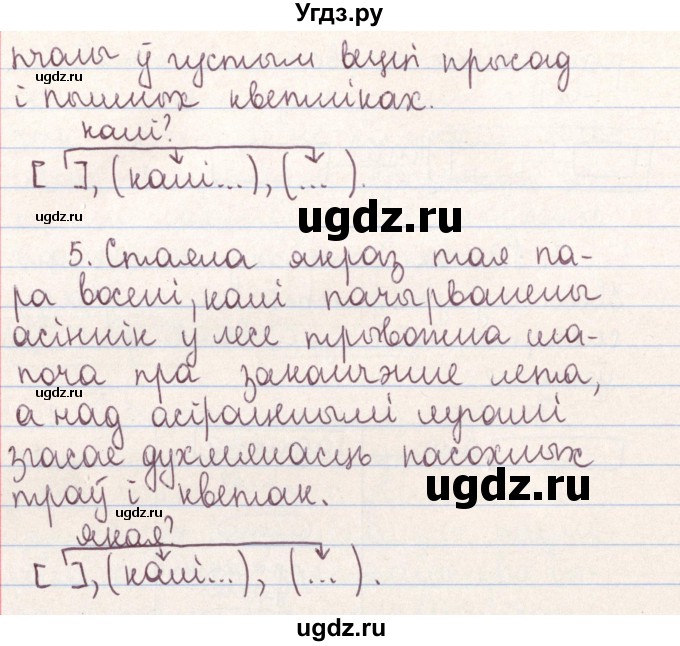 Угдз.ру
пчалы ў густым вецці прысад
ugdz.ru
і пышных кветніках.
калі?
[ ], (калі...), (...).
ugdz.ru
ugdz.ru
5. Стаяла якраз тая па-
ра восені, калі пачырванелы
асіннік у лесе трывожна ша-
поча пра заканчэнне лета,
ugdz.ru
а над астраўнымі лугамі
згасае духмянасць пасохлых
ugdz.ru
траў і кветак.
ugdz.ru
якая?
[ ], (калі...), (...).
ugdz.ru
ugdz.ru